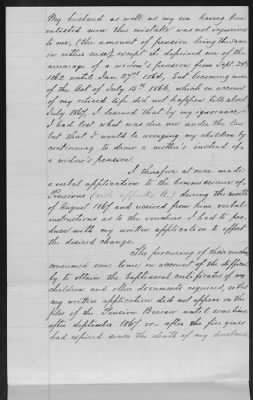 My husband as well as my son having been
enlisted men this mistake was not injurious
to me, (the amount of pension being the same
in either case), except it deprived me of the
arrearage of a widow's pension from Sept. 20th
1862 until Jan. 27th 1864, but becoming aware
of the Act of July 25th 1866, which on account
of my retired life did not happen till about
July 1867, I learned that by my ignorance
I had lost what was due me under the law
but that I would be wronging my children by
continuing to draw a mother's instead of
a widow's pension.
I therefore at once made
a verbal application to the Commissioner of
Pensions during the month
of August 1867 and received from him verbal
instructions as to the vouchers I had to pro-
duce with my written application to effect
the desired change.
The procuring of these vouchers
consumed some time on account of the difficul-
ty to obtain the baptismal certificates of my
children and other documents required, so that
my written application did not appear on the
files of the Pension Bureau until some time
after September 1867 or after the five years
had expired since the death of my husband